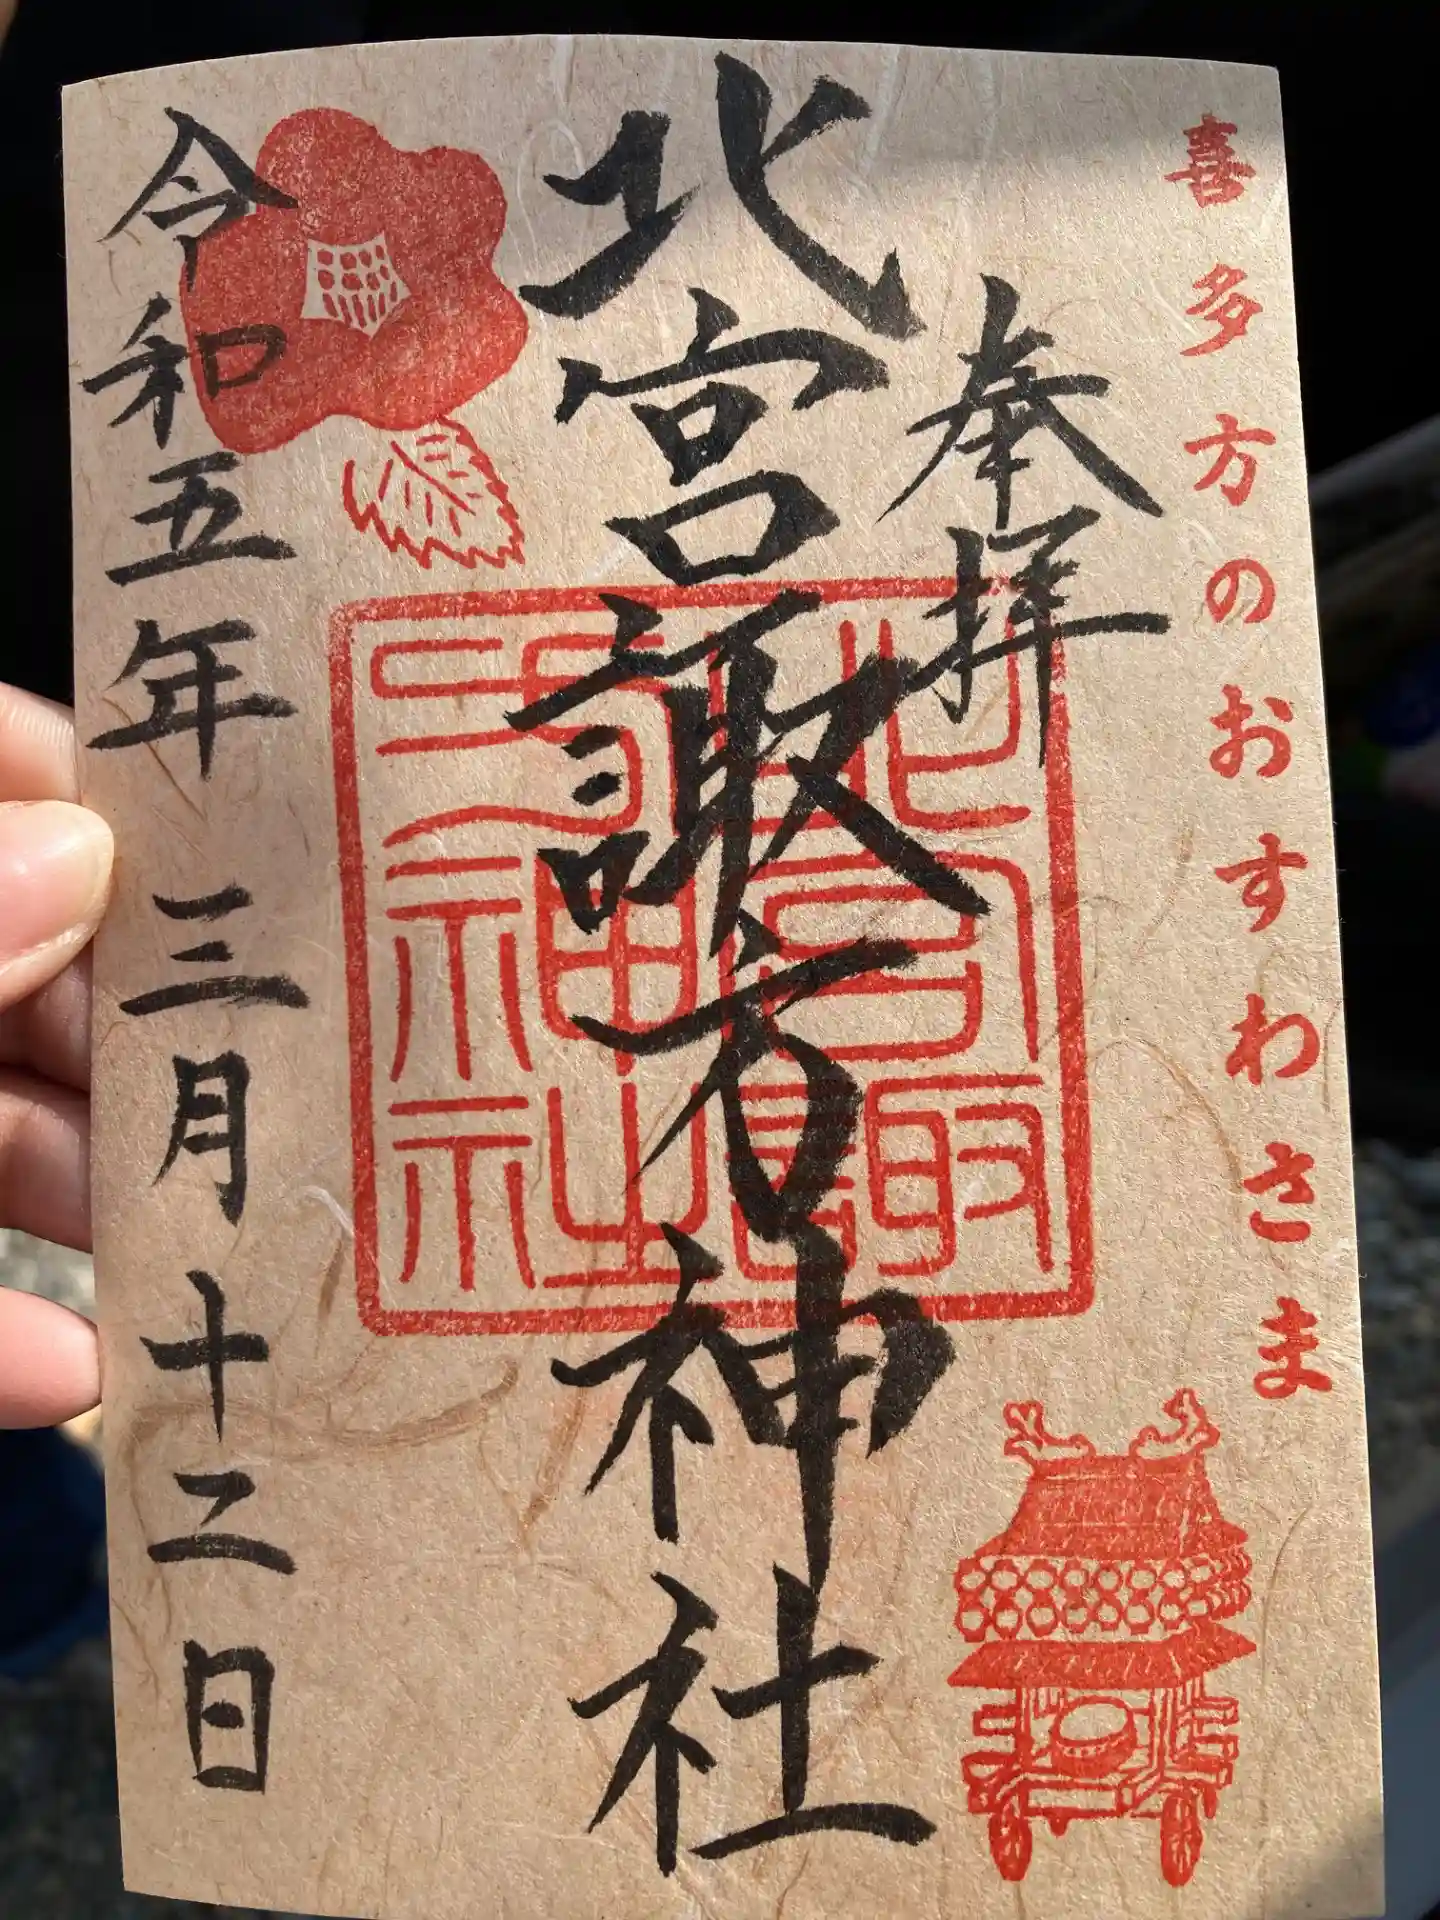 喜多方のおすわさま
奉拝
北宮諏方神社
北宮諏方神社
令和五年三月十二日